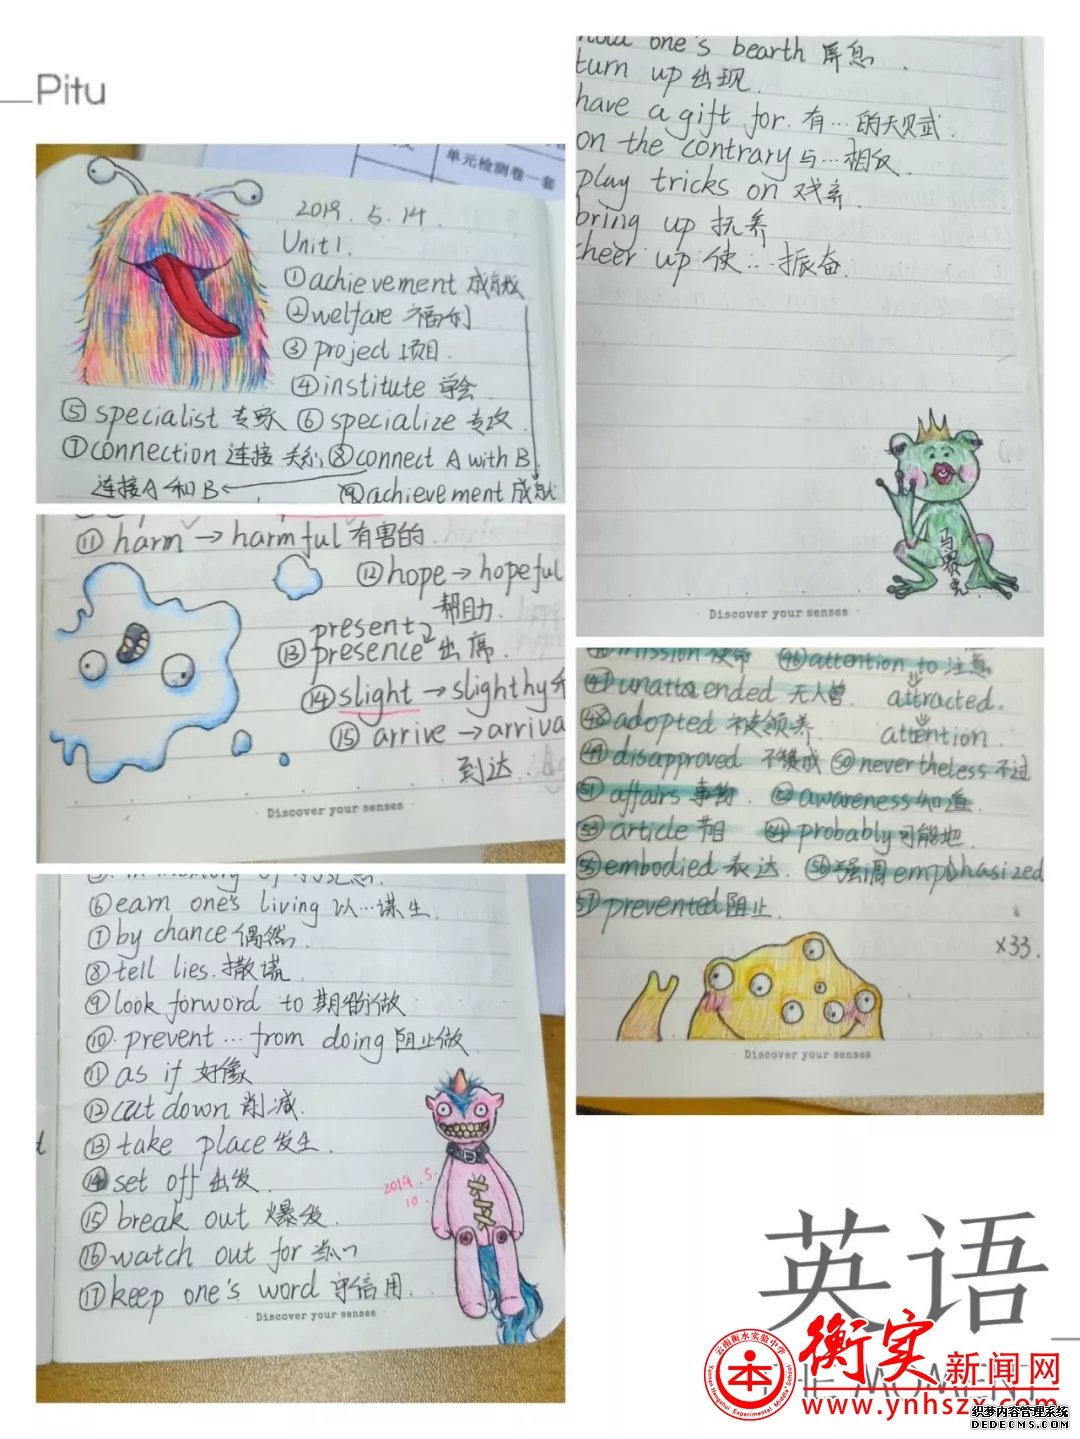 Pitu
单元检测卷一套
2019.5.14
Unit 1.
①achievement 成就
②welfare 福利
③project 项目.
④institute 学会
⑤specialist 专家 ⑥specialize 专攻.
⑦connection 连接 关系 ⑧connect A with B
连接A和B ⑨achievement 成就
⑪harm→harmful 有害的.
⑫hope→hopeful
帮助.
present
⑬presence 出席.
⑭slight→slighthy
⑮arrive→arriva
到达.
Discover your senses
⑥earn one's living 以…谋生.
⑦by chance 偶然.
⑧tell lies. 撒谎.
⑨look forword to 期待做
⑩prevent…from doing 阻止做.
⑪as if 好像
⑫cut down 削减.
⑬take place 发生.
⑭set off 出发.
⑮break out 爆发.
⑯watch out for 当心
⑰keep one's word 守信用.
2019.5.
10.
Discover your senses
one's bearth 屏息.
turn up 出现.
have a gift for. 有…的天赋.
on the contrary 与…相反.
play tricks on 戏弄.
bring up 抚养
cheer up 使…振奋.
Discover your senses
mission 使命 ㊻attention to 注意
㊼unattaended 无人管. attracted.
㊽adopted 被领养 attention.
㊾disapproved 不赞成 ㊿nevertheless 不过
51 affairs 事物. 52 awareness 知道.
53 article 54 probably 可能地.
55 embodied 表达. 56 强调 emphasized
57 prevented 阻止.
×33.
Discover your senses
英语
THE MOMENT
云南衡水实验中学
Yunnan Hengshui Experimental Middle School
本
衡实新闻网
www.ynhszx.com
织梦内容管理系统
DEDECMS.COM